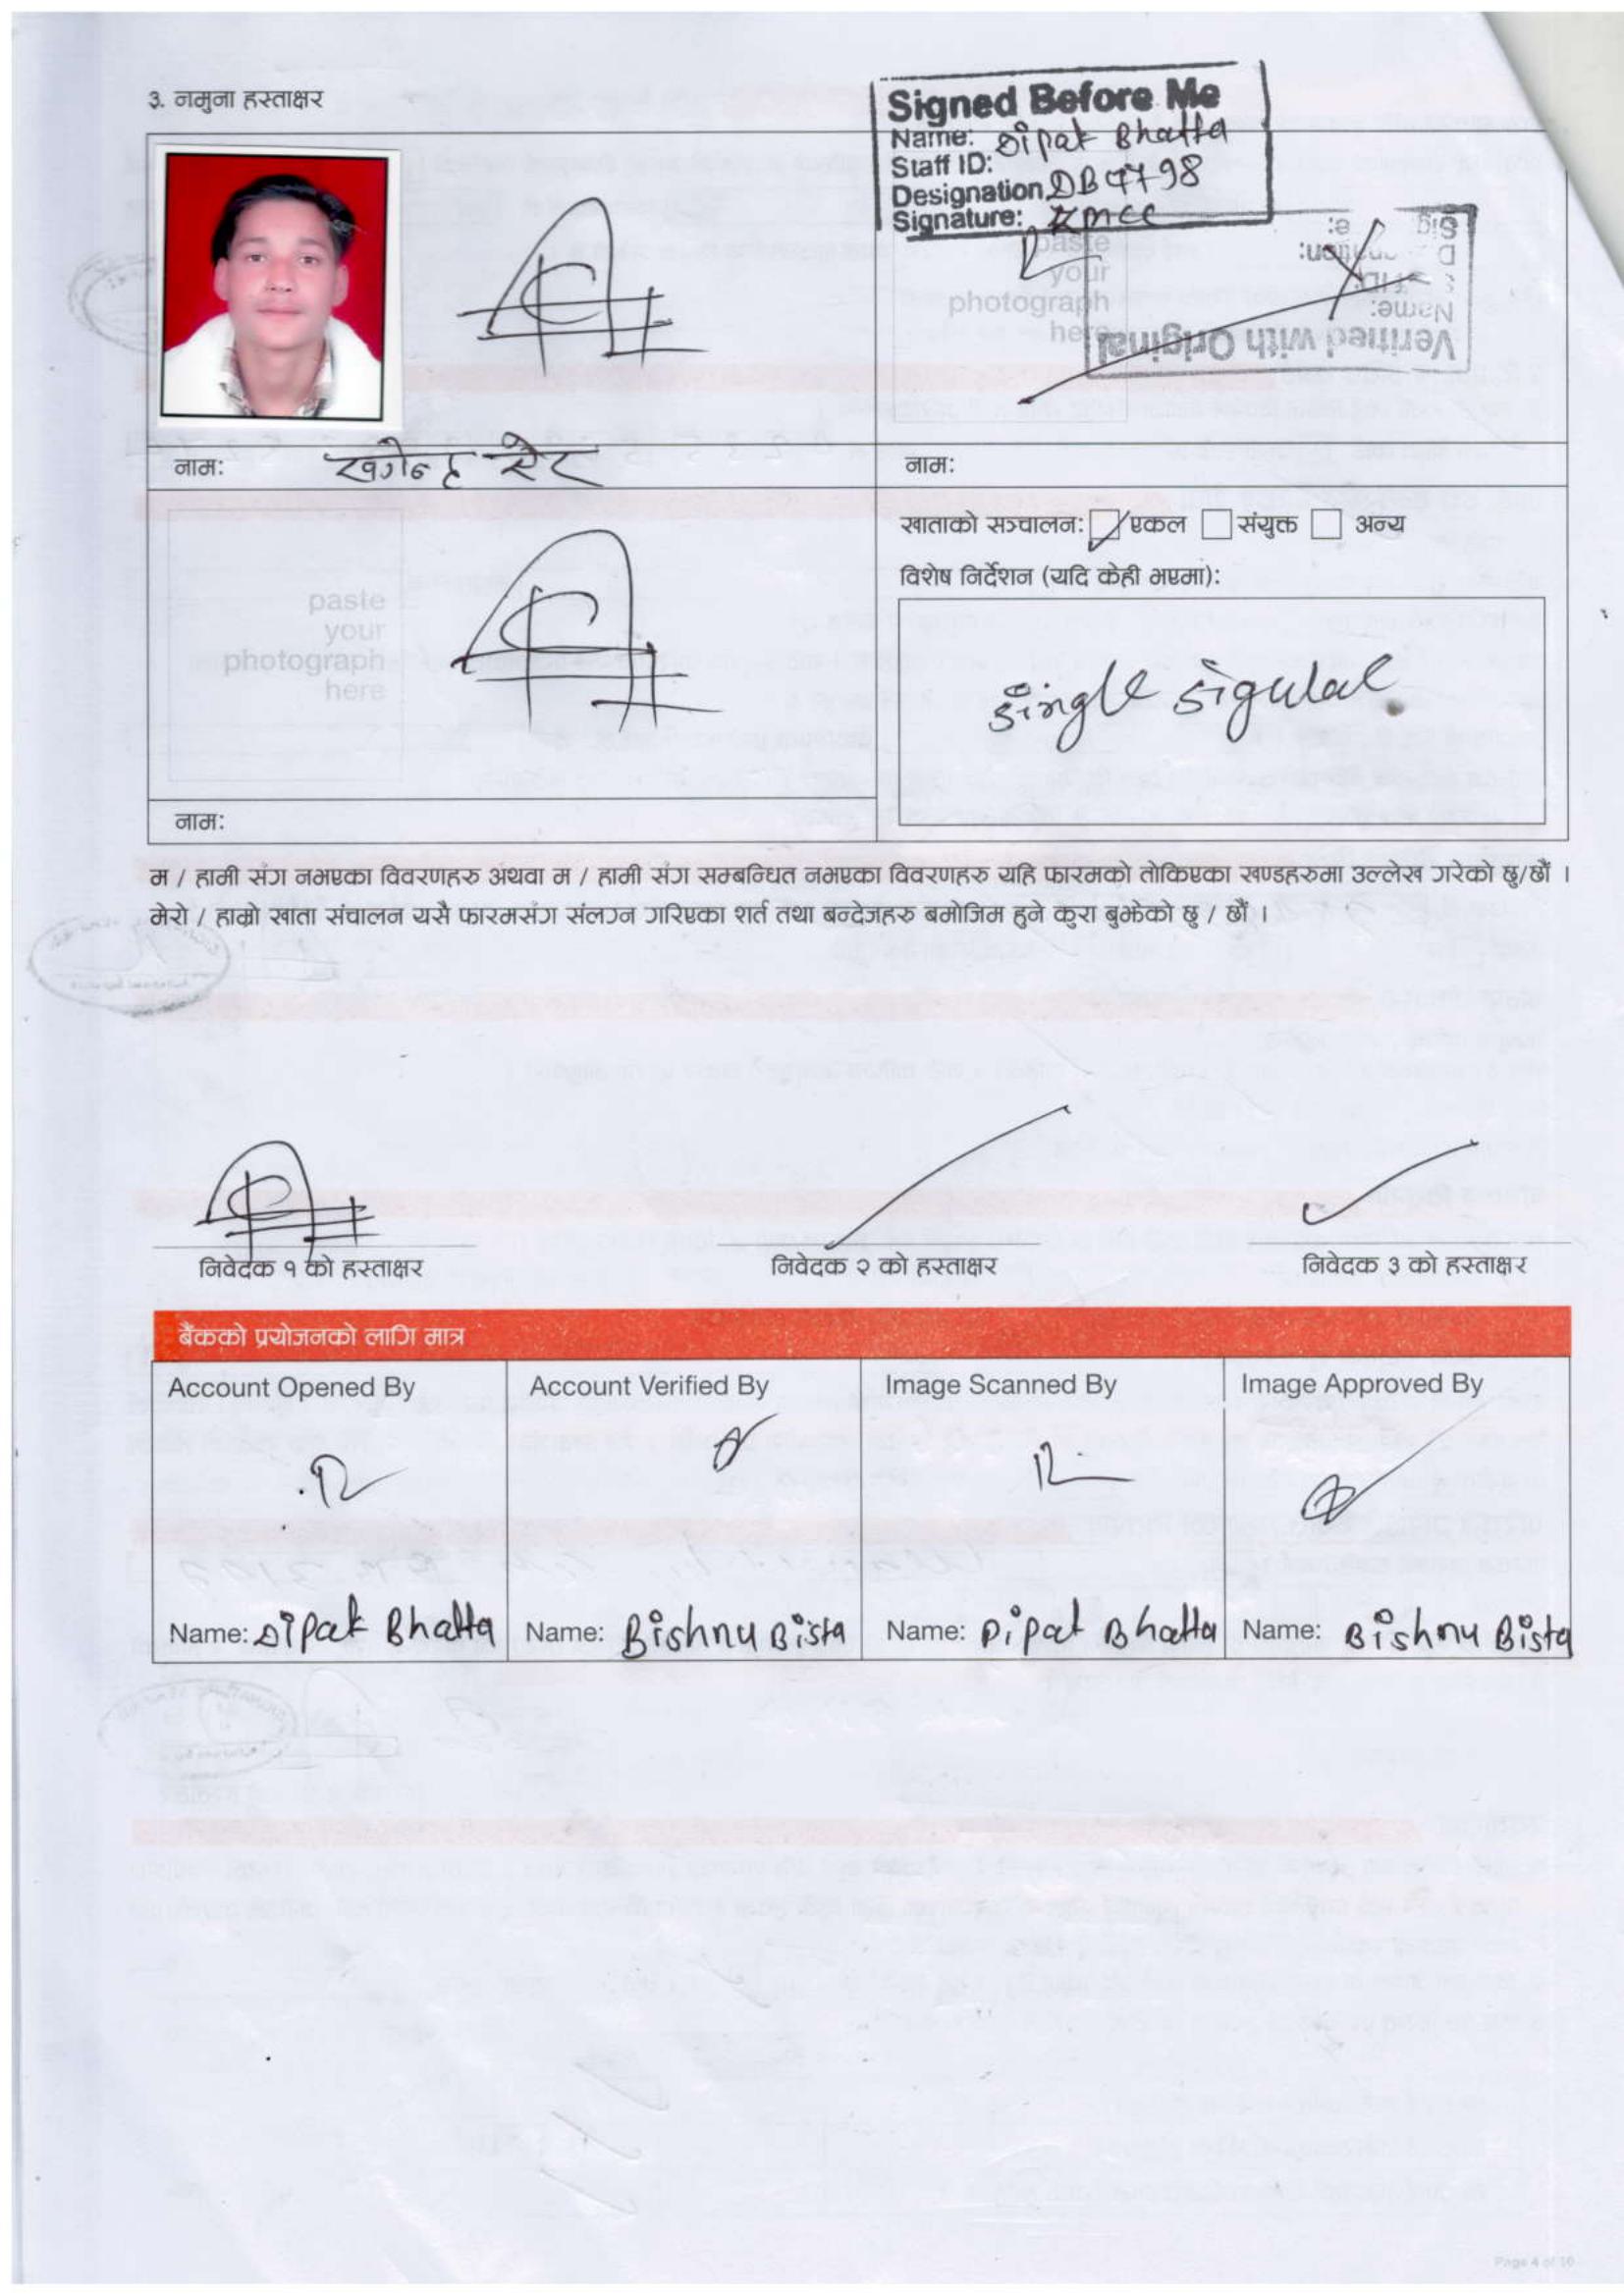 ३. नमुना हस्ताक्षर
Signed Before Me
Name: Dipak Bhatta
Staff ID:
Designation DB4798
Signature:
paste
your
photograph
here
Verified with Original
Name:
नाम: खगेन्द्र
नाम:
खाताको सञ्चालन: एकल संयुक्त अन्य
विशेष निर्देशन (यदि केही भएमा):
paste
your
photograph
here
single
नाम:
म / हामी संग नभएका विवरणहरु अथवा म / हामी संग सम्बन्धित नभएका विवरणहरु यहि फारमको तोकिएका खण्डहरुमा उल्लेख गरेको छु/छौं ।
मेरो / हाम्रो खाता संचालन यसै फारमसंग संलग्न गरिएका शर्त तथा बन्देजहरु बमोजिम हुने कुरा बुझेको छु / छौं ।
निवेदक १ को हस्ताक्षर निवेदक २ को हस्ताक्षर निवेदक ३ को हस्ताक्षर
बैंकको प्रयोजनको लागि मात्र
Account Opened By Account Verified By Image Scanned By Image Approved By
Name: Dipak Bhatta Name: Bishnu Bista Name: Dipak Bhatta Name: Bishnu Bista
Page 4 of 10